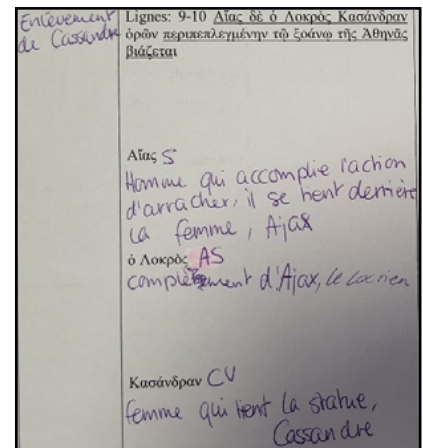 Enlèvement
de Cassandre
Lignes: 9-10 Αἴας δὲ ὁ Λοκρὸς Κασάνδραν
ὁρῶν περιπεπλεγμένην τῷ ξοάνῳ τῆς Ἀθηνᾶς
βιάζεται
Αἴας S
Homme qui accomplie l'action
d'arracher, il se tient derrière
la femme, Ajax
ὁ Λοκρὸς AS
complément d'Ajax, le Locrien
Κασάνδραν CV
femme qui tient la statue,
Cassandre